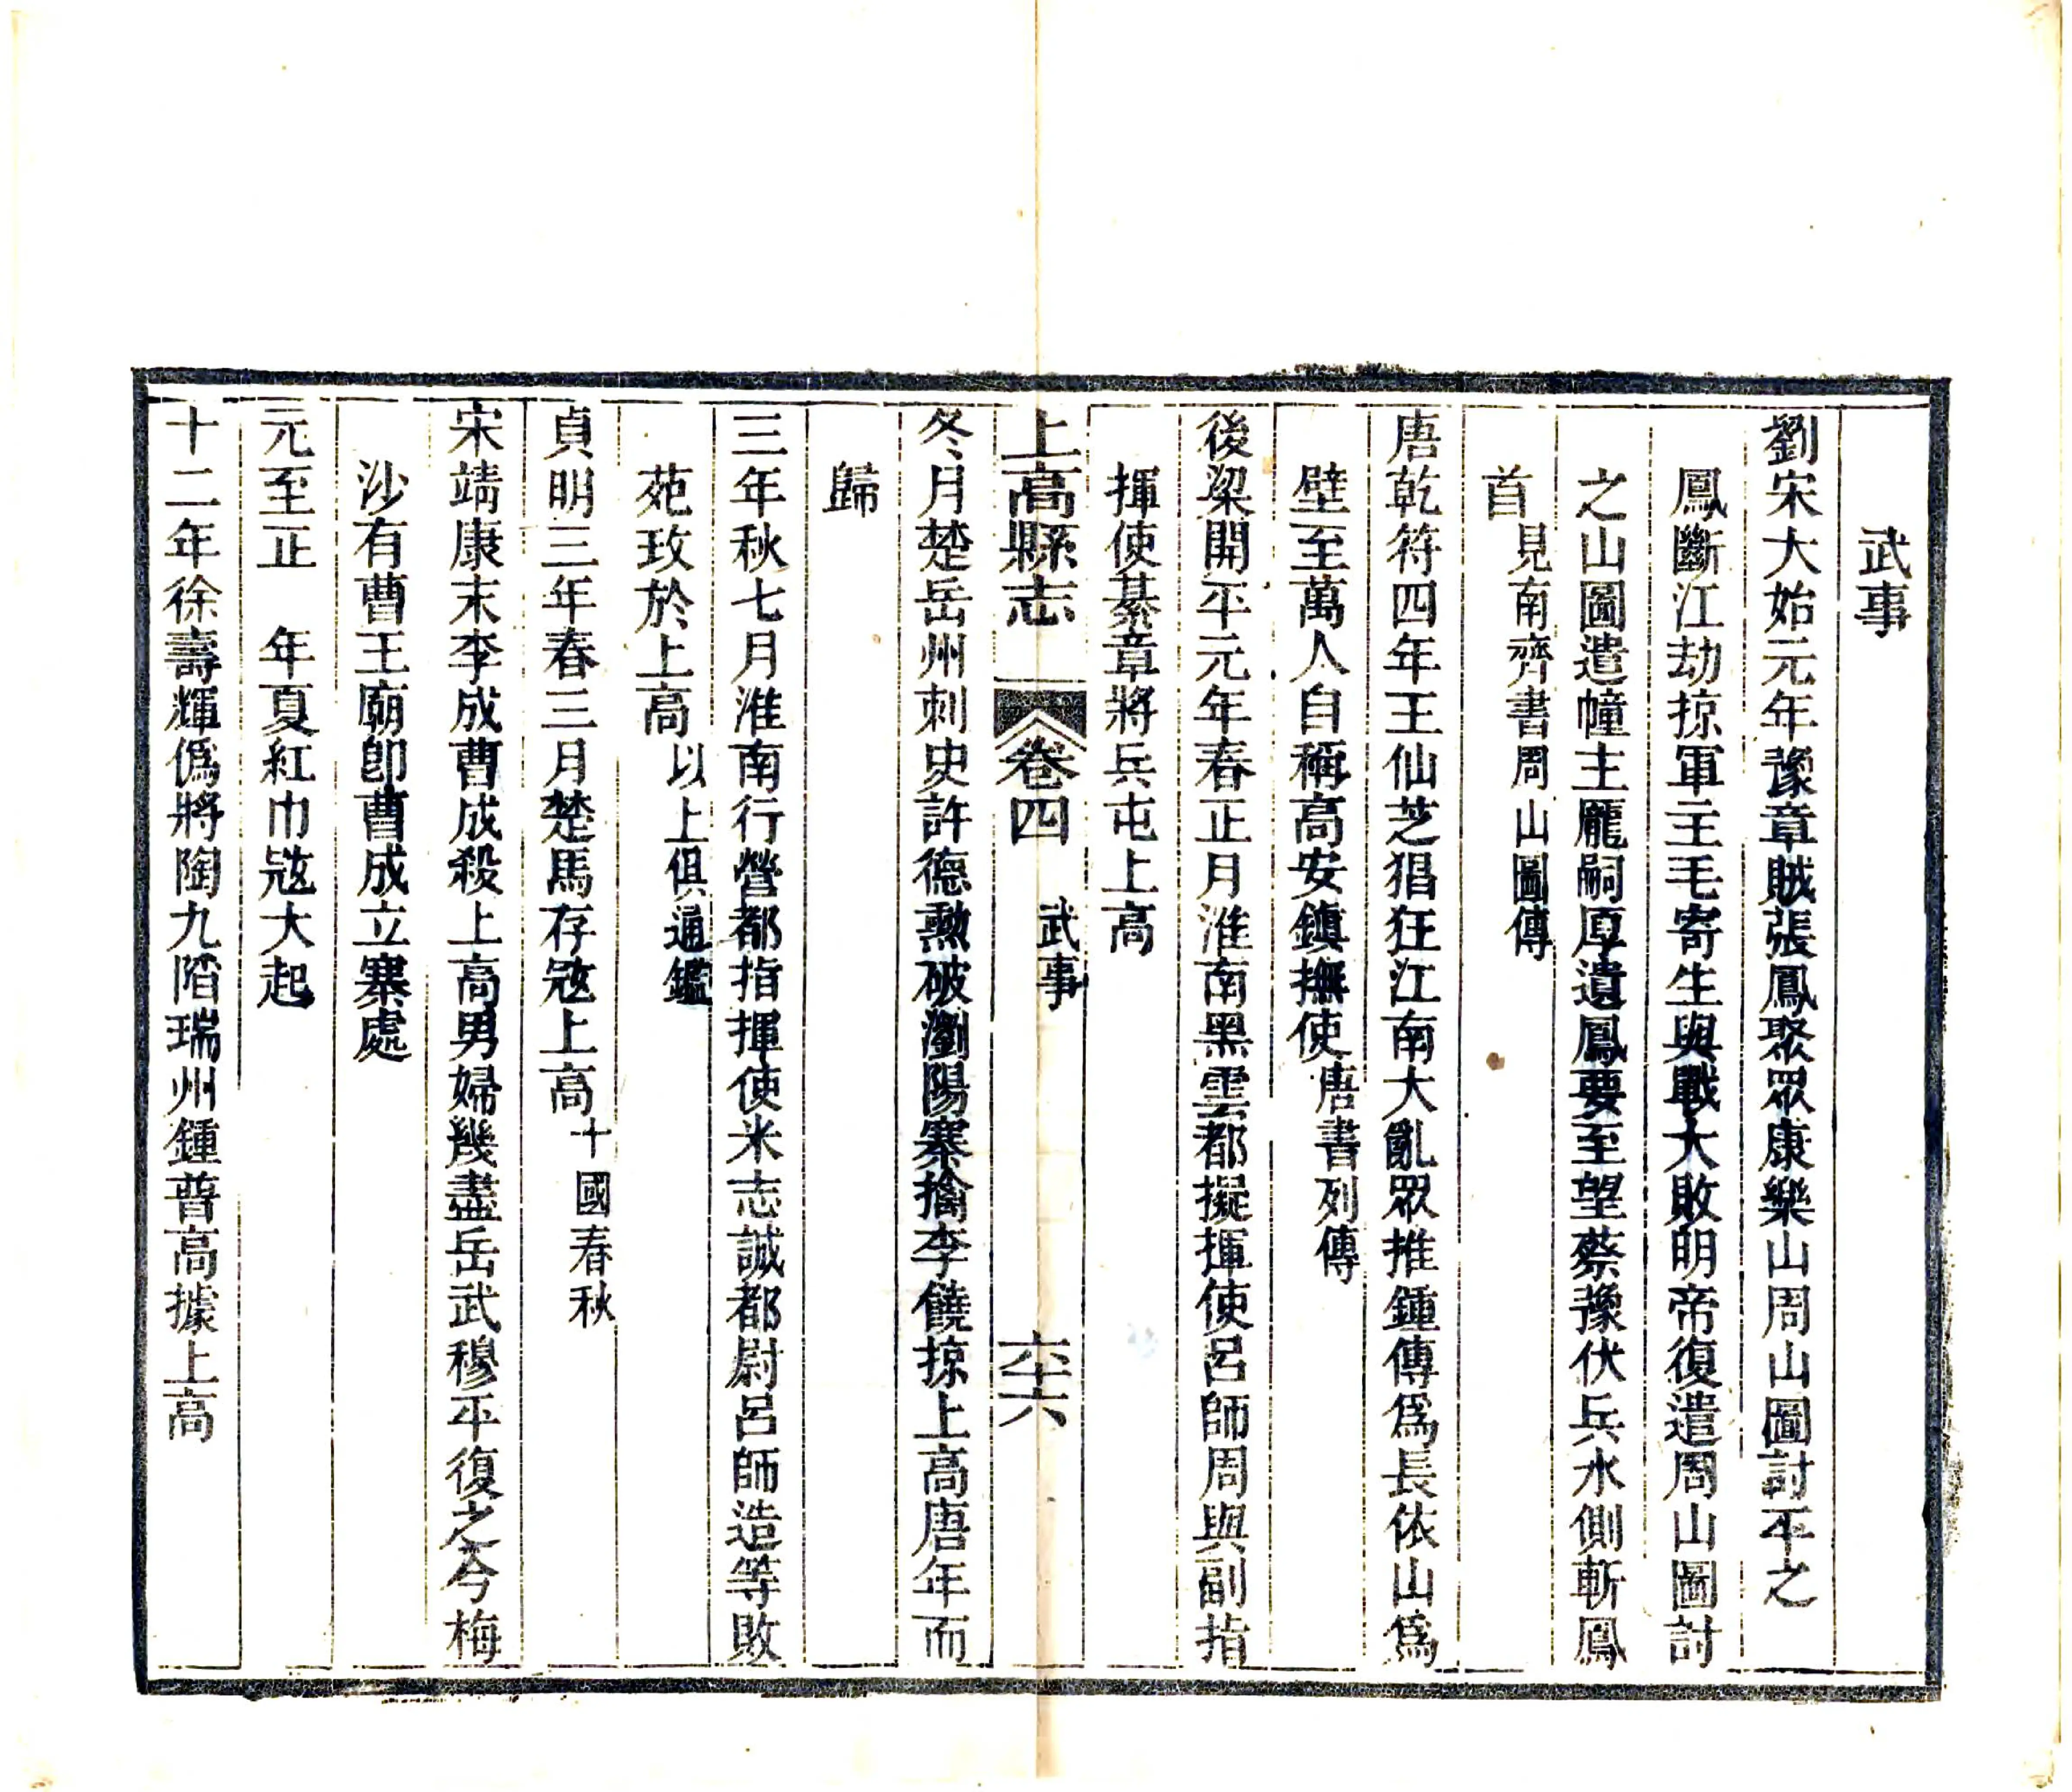 武事
劉宋大始元年豫章賊張鳳聚眾康樂山周山圖討平之
鳳斷江劫掠軍主毛寄生與戰大敗明帝復遣周山圖討
之山圖遣幢主龎嗣厚遺鳳要至望蔡豫伏兵水側斬鳳
首見南齊書周山圖傳
唐乾符四年王仙芝猖狂江南大亂眾推鍾傳爲長依山爲
壁至萬人自稱高安鎮撫使唐書列傳
後梁開平元年春正月淮南黑雲都擬揮使呂師周與副指
揮使綦章將兵屯上高
上高縣志 卷四 武事 六十六
冬月楚岳州刺史許德勲破瀏陽寨擒李饒掠上高唐年而
歸
三年秋七月淮南行營都指揮使米志誠都尉呂師造等敗
苑玫於上高以上俱通鑑
貞明三年春三月楚馬存𡨥上高十國春秋
宋靖康末李成曹成殺上高男婦幾盡岳武穆平復之今梅
沙有曹王廟卽曹成立寨處
元至正 年夏紅巾𡨥大起
十二年徐壽輝僞將陶九陷瑞州鍾普高據上高